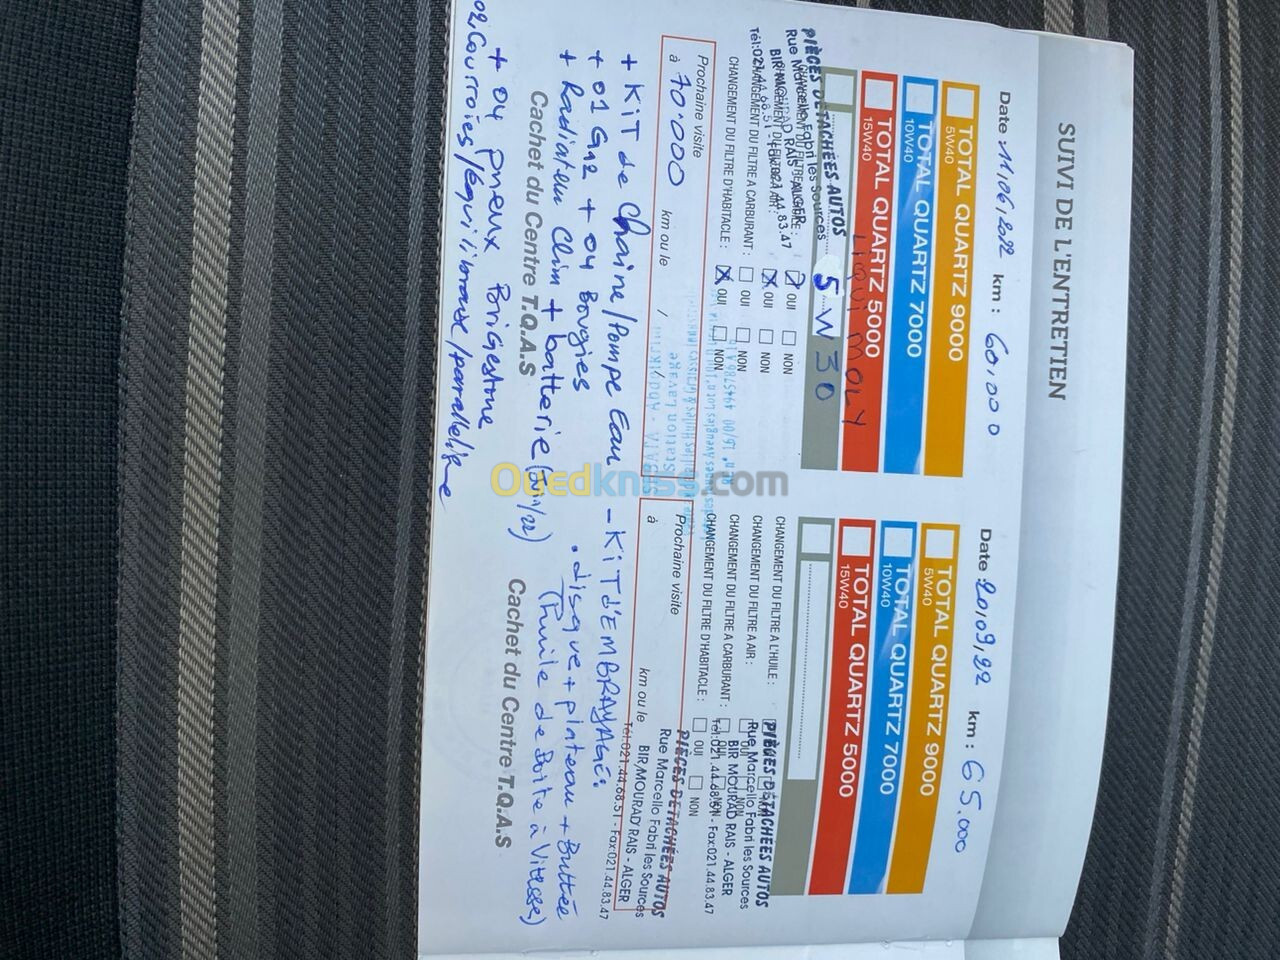 SUIVI DE L'ENTRETIEN
Date 11,06,2022 km : 60,000
TOTAL QUARTZ 9000
5W40
TOTAL QUARTZ 7000
10W40
TOTAL QUARTZ 5000
15W40
LIQUI MOLY
5 W 30
PIÈCES DETACHÉES AUTOS
Rue Marcello Fabri les Sources
BIR MOURAD RAIS - ALGER
Tél:021.44.68.51 - Fax:021.44.83.47
OUI NON
CHANGEMENT DU FILTRE A AIR : OUI NON
CHANGEMENT DU FILTRE A CARBURANT : OUI NON
CHANGEMENT DU FILTRE D'HABITACLE : OUI NON
Station Lavage
Prochaine visite
à 70.000 km ou le / /
+ KiT de Chaine/Pompe Eau
+ 01 Gaz + 04 Bougies
+ Radiateur Clim + batterie (Juin/22)
Cachet du Centre T.Q.A.S
+ 04 pneux Brigestone
02,Courroies/équilibrage/parallelisme
Date 20,09,22 km : 65.000
TOTAL QUARTZ 9000
5W40
TOTAL QUARTZ 7000
10W40
TOTAL QUARTZ 5000
15W40
CHANGEMENT DU FILTRE A L'HUILE :
CHANGEMENT DU FILTRE A AIR :
CHANGEMENT DU FILTRE A CARBURANT :
CHANGEMENT DU FILTRE D'HABITACLE : OUI NON
PIÈCES DETACHÉES AUTOS
Rue Marcello Fabri les Sources
BIR MOURAD RAIS - ALGER
Tél:021.44.68.51 - Fax:021.44.83.47
Prochaine visite
à km ou le
PIÈCES DETACHÉES AUTOS
Rue Marcello Fabri les Sources
BIR MOURAD RAIS - ALGER
Tél:021.44.68.51 - Fax:021.44.83.47
- KiT d'EMBRAYAGE:
. disque + plateau + Buttée
(Huile de Boite à Vitesse)
Cachet du Centre T.Q.A.S
Ouedkniss.com